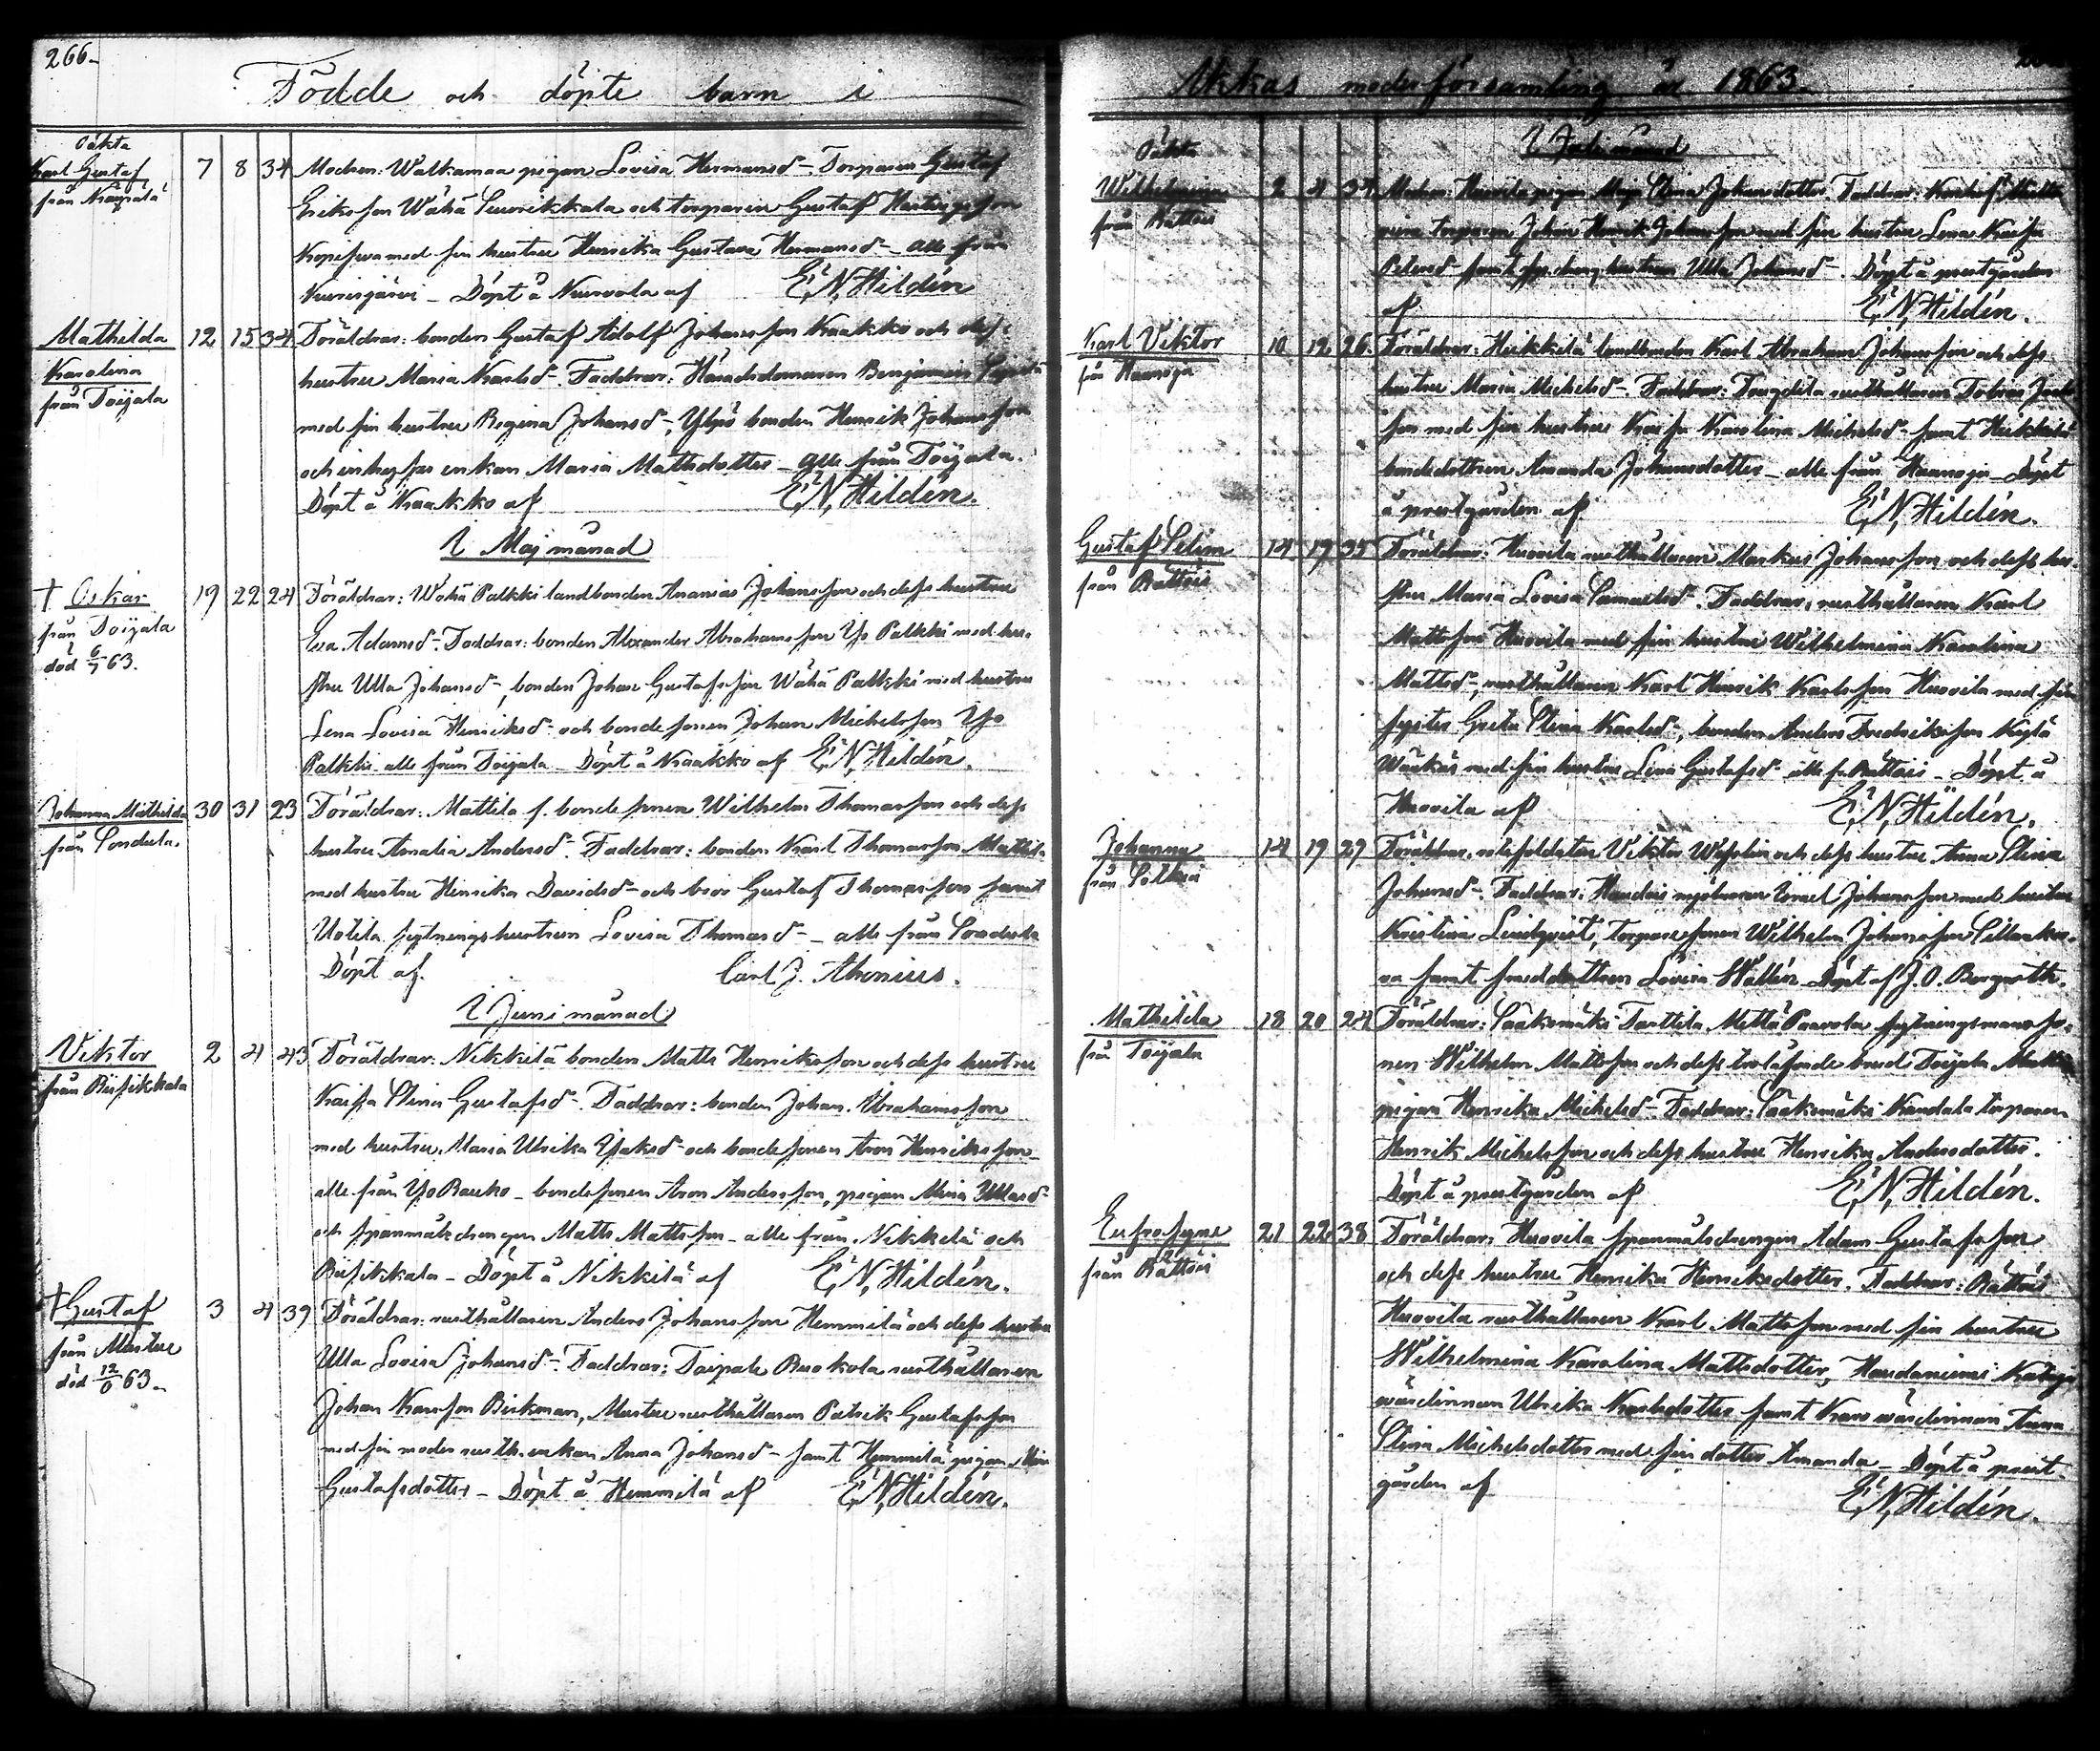 266.
Födde och döpte barn i
Oäkta
Karl Gustaf
från
7 8 34
Modren: Walkamaa pigan Lovisa Hermansd- Torparen Gustaf
Eriksson Wähä och torparen Gustaf
med sin hustru Henrika Gustava Hermansd- alle från
Döpt å af E. N. Hildén
Mathilda
Karolina
från Toijala
12 15 34
Föräldrar: bonden Gustaf Adolf Johansson Kraakko och dess
hustru Maria Karlsd- Faddrar: Häradsdomaren Benjamin
med sin hustru Regina Johansd-, Ylpö bonden Henrik Johansson
och enkan Maria Mattsdotter - alle från Toijala.
Döpt å Kraakko af E. N. Hildén.
I Maj månad
† Oskar
från Toijala
död 6/7 63.
19 22 24
Föräldrar: Wähä Palkki landbonden Ananias Johansson och dess hustru
Eva Adamsd- Faddrar: bonden Alexander Abrahamsson Yso Palkki med hu-
stru Ulla Johansd-, bonden Johan Gustafsson Wähä Palkki med hustru
Lena Lovisa Henriksd- och bondesonen Johan Michelsson Yso
Palkki alle från Toijala - Döpt å Kraakko af E. N. Hildén.
Johanna Mathilda
från Sondula.
30 31 23
Föräldrar: Mattila f. bondesonen Wilhelm Thomasson och dess
hustru Amalia Andersd- Faddrar: bonden Karl Thomasson
med hustru Henrika Davidsd- och bror Gustaf Thomasson samt
Uotila sytningshustrun Lovisa Thomasd- - alle från Sondula
Döpt af. Carl J. Ahonius.
I Juni månad
Viktor
från Riisikkala
2 4 43
Föräldrar: Nikkilä bonden Matts Henriksson och dess hustru
Kaisa Stina Gustafsd- Faddrar: bonden Johan Abrahamsson
med hustru Maria Ulrika och bondesonen Aron Henriksson
alle från Yso Rauko - bondesonen Aron Andersson, pigan
och spannmålsdrengen Matts Mattsson - alle från Nikkilä och
Riisikkala - Döpt å Nikkilä af E. N. Hildén.
† Gustaf
från Mustue
död 12/6 63.
3 4 39
Föräldrar: rusthållaren Anders Johansson Hemmilä och dess hustru
Ulla Lovisa Johansd- Faddrar: Taipale Ruokola rusthållaren
Johan Karsson Birkman, Mustue rusthållaren Patrik Gustafsson
med sin moder rusth. enkan Anna Johansd- samt Hemmilä pigan
Gustafsdotter - Döpt å Hemmilä af E. N. Hildén.
Akkas moderförsamling år 1863.
I Juli månad
Oäkta
Wilhelmina
från Rättöis
2 4 34
Modren: Huovila pigan Maja Stina Johansdotter. Faddrar:
torparen Johan Henrik Johansson med sin hustru Lena Kaisa
Petersd- samt hustrun Ulla Johansd- Döpt å prestgården
af E. N. Hildén.
Karl Viktor
från Haaroja
10 12 26
Föräldrar: Heikkilä landbonden Karl Abraham Johansson och dess
hustru Maria Michelsd- Faddrar: rusthållaren Tobias
son med sin hustru Kaisa Karolina Michelsd- samt Heikkilä
bondedottren Amanda Johansdotter - alle från Haaroja - Döpt
å prestgården af E. N. Hildén.
Gustaf Selim
från Rättöis
14 19 35
Föräldrar: Huovila rusthållaren Markus Johansson och dess hu-
stru Maria Lovisa Samuelsd- Faddrar: rusthållaren Karl
Mattsson Huovila med sin hustru Wilhelmina Karolina
Mattsd-, rusthållaren Karl Henrik Karlsson Huovila med sin
syster Greta Stina Karlsd-, bonden Anders Fredriksson Kylä
med sin hustru Lena Gustafsd- alle fr. Rättöis - Döpt å
Huovila af E. N. Hildén.
Johanna
från Sotkia
14 19 29
Föräldrar: Viktor och dess hustru Anna Stina
Johansd- Faddrar: mjölnaren Israel Johansson med hustru
Kristina Lindqvist, torparesonen Wilhelm Johansson
samt smeddottren Lovisa Wallén - Döpt af J. O. Bergroth.
Mathilda
från Toijala
18 20 24
Föräldrar: Sääksmäki Tarttila Mettä Paavola sytningsmansso-
nen Wilhelm Mattsson och dess trolofvade brud Toijala
pigan Henrika Michelsd- Faddrar: Sääksmäki torparen
Henrik Michelsson och dess hustru Henrika Andersdotter.
Döpt å prestgården af E. N. Hildén.
Eufrosyne
från Rättöis
21 22 38
Föräldrar: Huovila spannmålsdrengen Adam Gustafsson
och dess hustru Henrika Henriksdotter. Faddrar: Rättöis
Huovila rusthållaren Karl Mattsson med sin hustru
Wilhelmina Karolina Mattsdotter,
värdinnan Ulrika Karlsdotter samt värdinnan Anna
Stina Michelsdotter med sin dotter Amanda - Döpt å prest-
gården af E. N. Hildén.